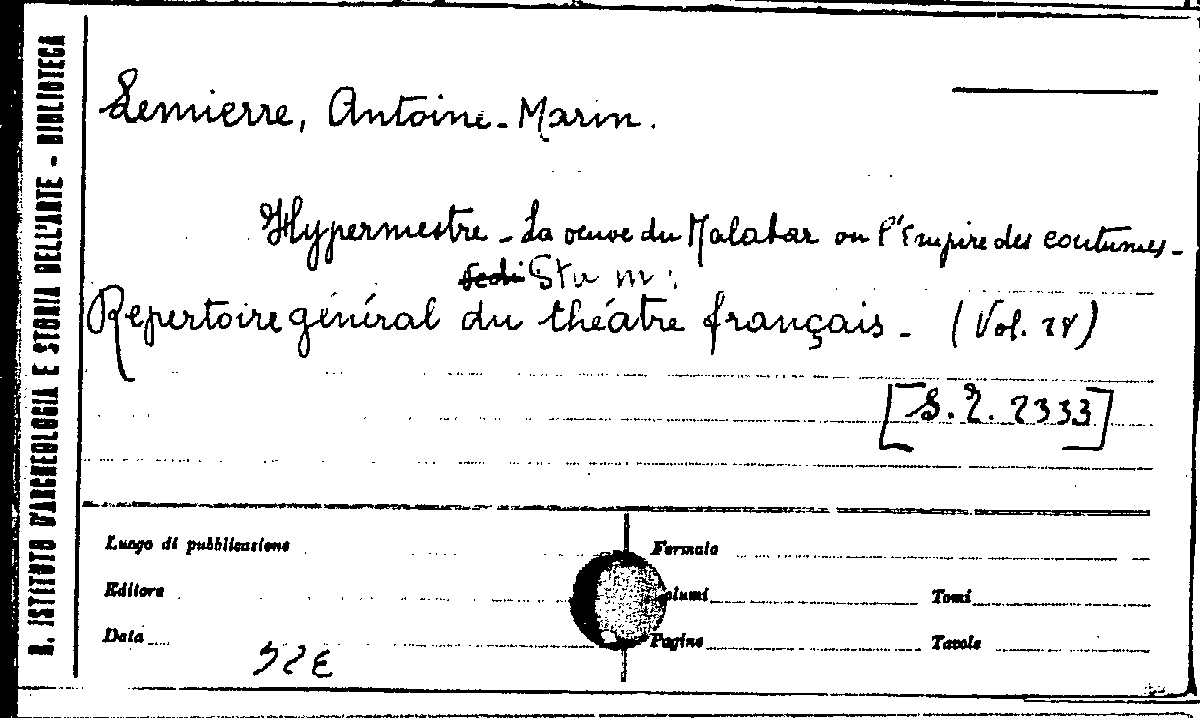 R. ISTITUTO D'ARCHEOLOGIA E STORIA DELL'ARTE - BIBLIOTECA
Lemierre, Antoine-Marin.
Hypermestre - La veuve du Malabar ou l'Empire des coutumes -
in:
Repertoire général du théâtre français - (Vol. 28)
[S. Z. 2333]
Luogo di pubblicazione
Formato
Editore
Volumi
Tomi
Data
Pagine
Tavole